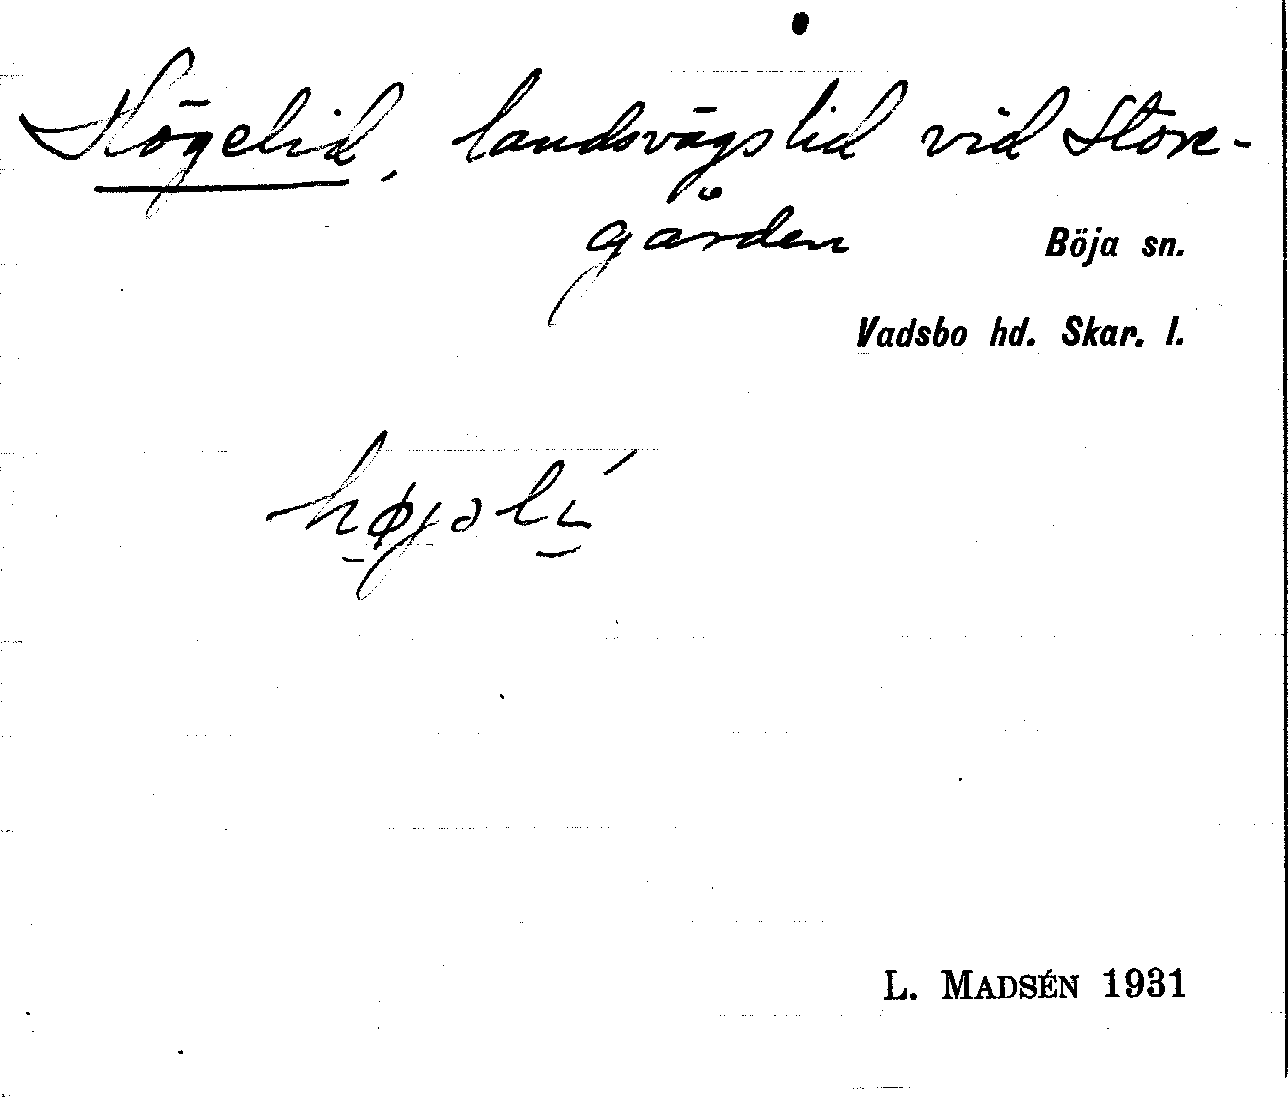 Högelid, landsvägslid vid Store-
gården
Böja sn.
Vadsbo hd. Skar. l.
højəlí
L. MADSÉN 1931